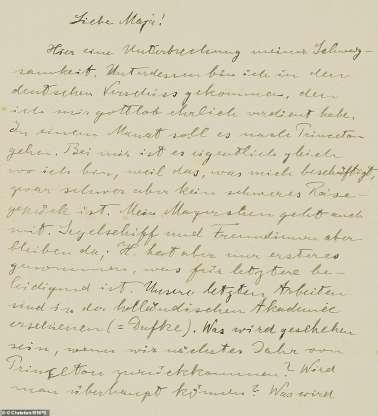 Liebe Maja!
Hier eine Unterbrechung meiner Schweig-
samkeit. Unterdessen bin ich in den
deutschen Verschiss gekommen, den
ich mir gottlob ehrlich verdient habe.
In einem Monat soll es nach Princeton
gehen. Bei mir ist es eigentlich gleich
wo ich bin, weil das, was mich beschäftigt,
zwar schwer aber kein schweres Reise-
gepäck ist. Mein Mayerchen geht auch
mit. Segelschiff und Freundinnen aber
bleiben da; H. hat aber nur ersteres
genommen, was für letztere be-
leidigend ist. Unsere letzten Arbeiten
sind in der holländischen Akademie
erschienen (= Dufke). Was wird geschehen
sein, wenn wir nächstes Jahr von
Princeton zurückkommen? Wird
man überhaupt können? Was wird
© Christian/BNPS